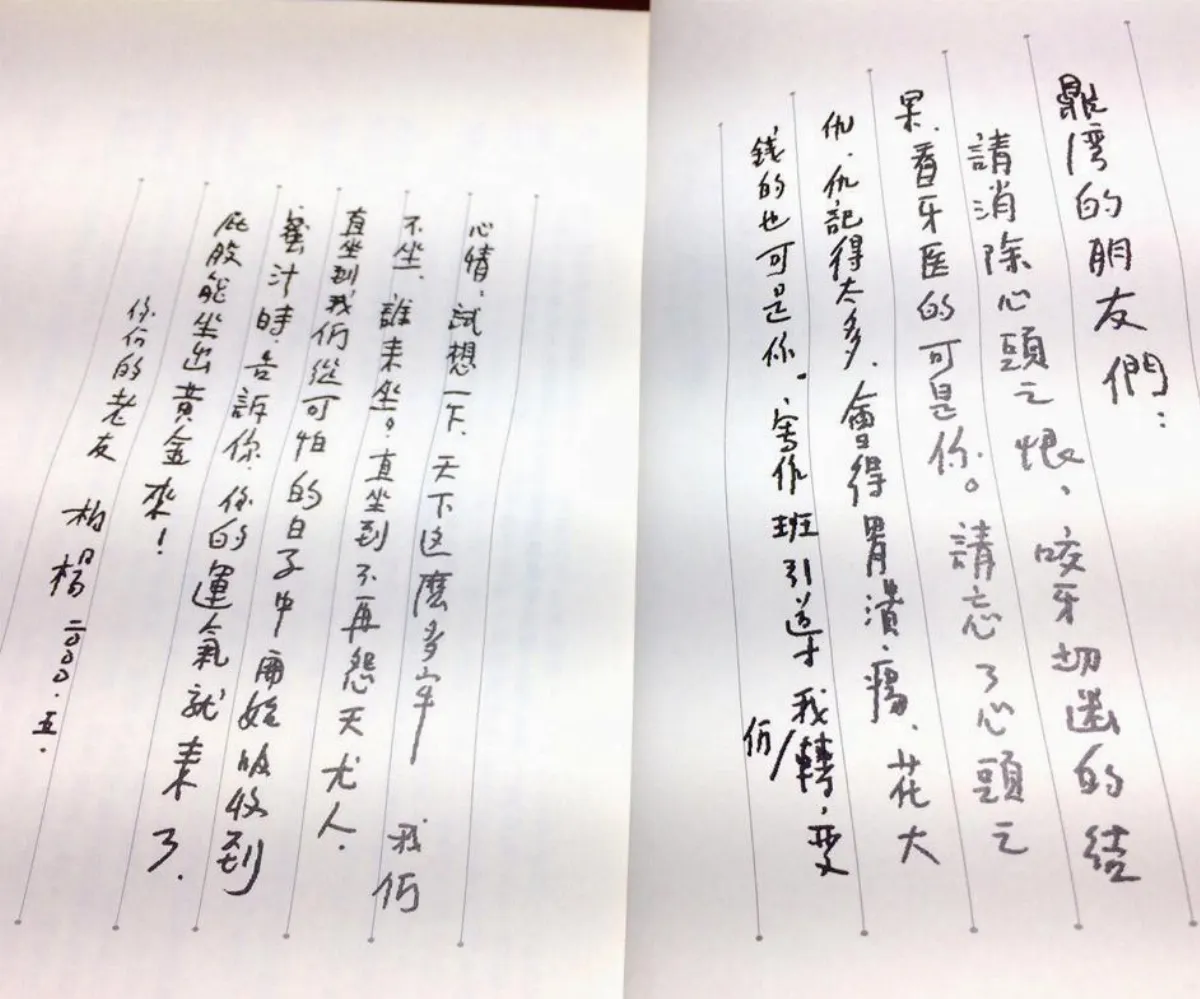 鼎湾的朋友們：
請消除心頭之恨、咬牙切齒的結
果、看牙医的可是你。請忘了心頭之
仇、仇記得太多、會得胃潰瘍、花大
錢的也可是你。寫作班引導我们轉变
心情、試想一下、天下这麼多牢 我们
不坐、誰来坐。直坐到不再怨天尤人、
直坐到我们從可怕的日子中 開始吸收到
蜜汁時、告訴你、你的運氣就来了、
屁股能坐出黃金來！
你们的老友 柏楊 二〇〇〇.五.